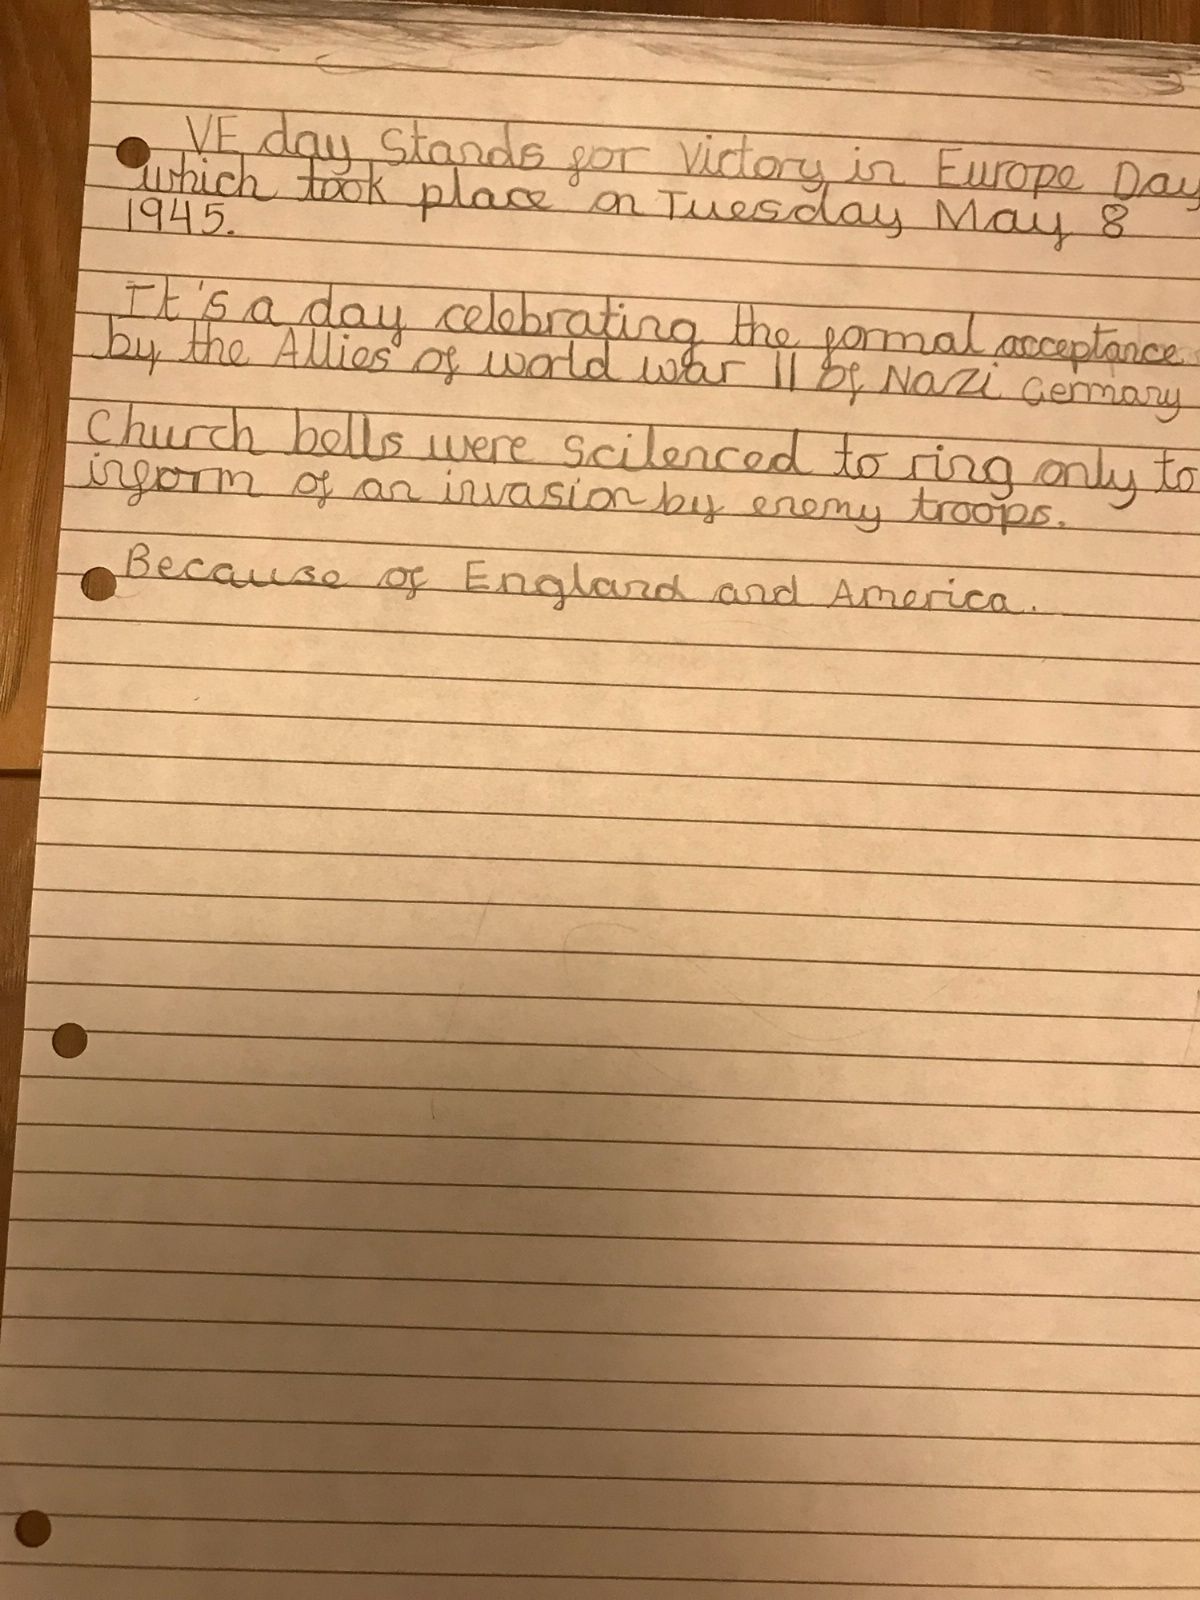 VE day Stands for Victory in Europe Day
which took place on Tuesday May 8
1945.
It's a day celebrating the formal acceptance
by the Allies of world war II of Nazi Germany
Church bells were scilenced to ring only to
inform of an invasion by enemy troops.
Because of England and America.